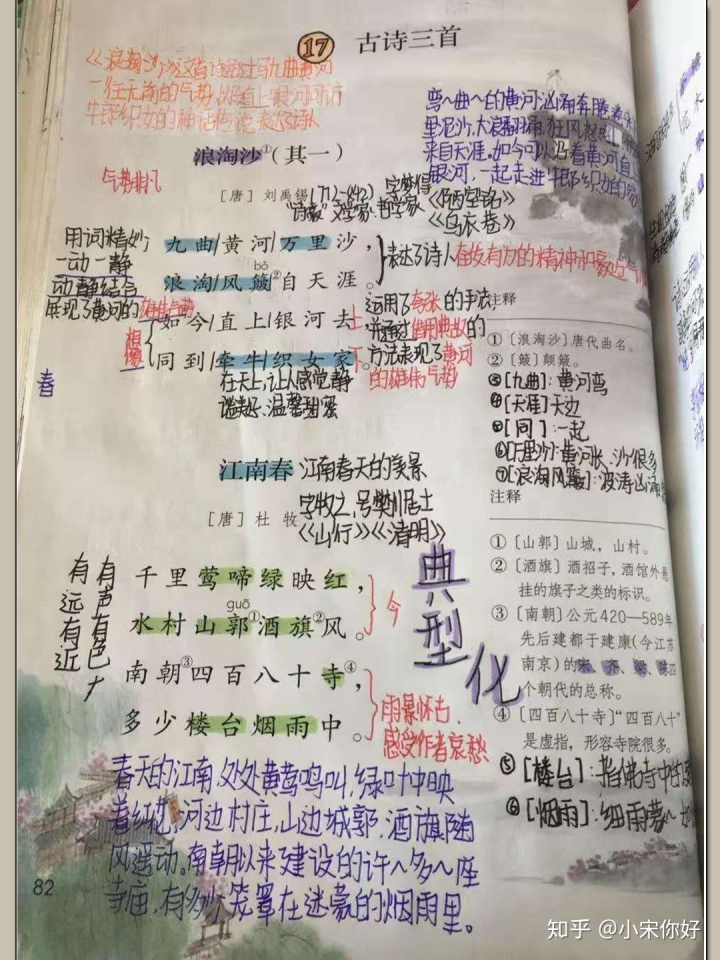 17 古诗三首
一往无前的气势
牛郎织女的神话传说表达了诗人
弯～曲～的黄河汹涌奔腾
里泥沙,大浪翻涌,狂风怒
来自天涯。如今可以沿着黄河直上
银河,一起走进牛郎织女的家
浪淘沙①(其一)
气势非凡
[唐] 刘禹锡(772-842) 字梦得
“诗豪”文学家、哲学家《陋室铭》
《乌衣巷》
用词精妙
一动一静
动静结合
展现了黄河的雄伟气势
九曲/黄河/万里沙,
bǒ
浪淘/风簸②自天涯。
表达了诗人奋发有为的精神和豪迈气
如今/直上/银河去,
同到/牵牛/织女家。
想象
运用了夸张的手法,
并通过借用典故的
方式表现了黄河
的雄伟气势
在天上,让人感觉静
谧美好、温馨甜蜜
春
注释
①〔浪淘沙〕唐代曲名。
②〔簸〕颠簸。
③[九曲]:黄河弯
④[天涯]天边
⑤[同]:一起
⑥[万里沙]:黄河长、沙很多
⑦[浪淘风簸]:波涛汹涌
江南春 江南春天的美景
字牧之,号樊川居士
[唐] 杜牧 《山行》《清明》
有声有色
有远有近
千里莺啼绿映红,
guō
水村山郭①酒旗②风。
今
南朝③四百八十寺④,
多少楼台烟雨中。
雨景怀古、
感受作者哀愁
典型化
注释
①〔山郭〕山城,山村。
②〔酒旗〕酒招子,酒馆外悬
挂的旗子之类的标识。
③〔南朝〕公元420—589年
先后建都于建康(今江苏
南京)的宋、齐、梁、陈四
个朝代的总称。
④〔四百八十寺〕“四百八十”
是虚指,形容寺院很多。
⑤[楼台]:指佛寺中的
⑥[烟雨]:细雨蒙～
春天的江南,处处黄莺鸣叫,绿叶中映
着红花,河边村庄,山边城郭,酒旗随
风遥动。南朝以来建设的许～多～座
寺庙,有多少笼罩在迷蒙的烟雨里。
82
知乎 @小宋你好